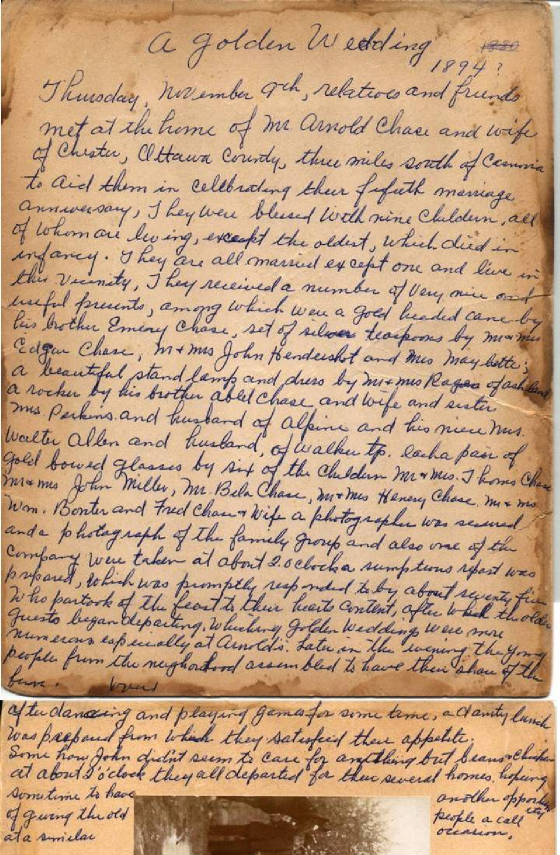 A Golden Wedding
1880
1894?
Thursday, November 9th, relatives and friends
met at the home of Mr Arnold Chase and wife
of Chester, Ottawa County, three miles south of Casnovia
to aid them in celebrating their fifieth marriage
anniversary, They were blessed with nine Childern, all
of whom are living, except the oldest, which died in
infancy. They are all married except one and live in
this vicinity, They received a number of very nice and
useful presents, among which were a gold headed cane by
his brother Emery Chase, set of silver teaspoons by mr & mrs
Edgar Chase, m & mrs John Hendershot and Mrs May
a beautiful stand lamp and dress by Mr & mrs of
a rocker by his brother Abel Chase and wife and sister
mrs. Perkins and husband of Alpine and his niece Mrs.
Walter Allen and husband, of Walker tp. each a pair of
gold bowed glasses by six of the Childern Mr & Mrs. Thomas Chase
Mr & ms John Miller, Mr. Bela Chase, Mr & Mrs Henery Chase, Mr & mrs
Wm. Bonter and Fred Chase & Wife a photographer was secured
and a photograph of the family group and also one of the
company were taken at about 2.oclock a sumptious repast was
prepared, which was promptly responded to by about seventy five
who partook of the feast to their hearts content, after which the older
guests began departing, Whiching golden Weddings were more
numerous especially at Arnold's. Later in the evening the young
people from the neighorhood assembled to have their share of the
fun. over
after dancing and playing games for some time, a danty lunch
was prepared from which they satisfied their appetite.
Some how John didn't seem to care for anything but beans & chicken
at about 2 o'clock they all departed for their several homes, hoping
sometime to have another opportunity
of giving the old people a call
at a similar occasion.